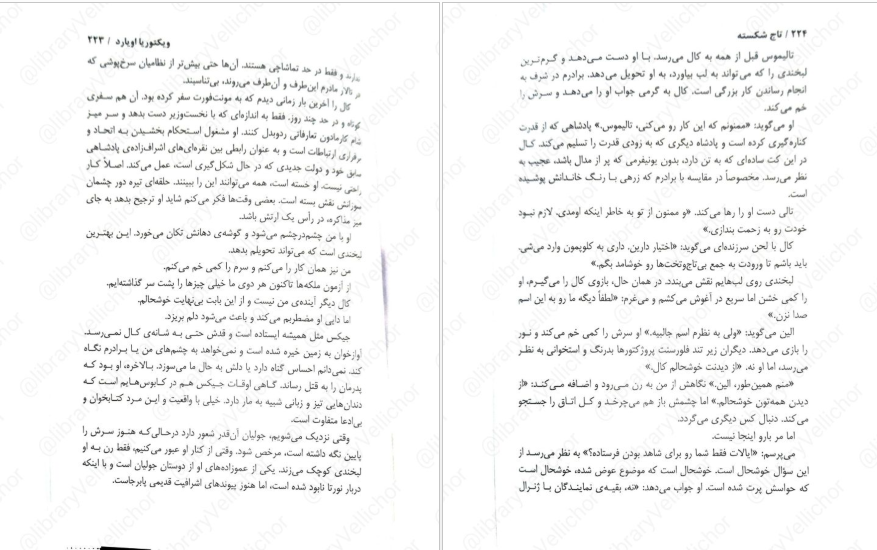 ویکتوریا اویارد / ۲۲۳
ندارند و فقط در حد تماشاچی هستند. آن‌ها حتی بیش‌تر از نظامیان سرخ‌پوشی که
در تالار مادرم این‌طرف و آن‌طرف می‌روند، بی‌تناسبند.
کال را آخرین بار زمانی دیدم که به مونت‌فورت سفر کرده بود. آن هم سفری
کوتاه و در حد چند روز. فقط به اندازه‌ای که با نخست‌وزیر دست بدهد و سر میز
شام کارمادون تعارفاتی ردوبدل کنند. او مشغول استحکام بخشیدن به اتحاد و
برقراری ارتباطات است و به عنوان رابطی بین نقره‌ای‌های اشراف‌زاده‌ی پادشاهی
سابق خود و دولت جدیدی که در حال شکل‌گیری است، عمل می‌کند. اصلاً کار
راحتی نیست. او خسته است، همه می‌توانند این را ببینند. حلقه‌ای تیره دور چشمان
سوزانش نقش بسته است. بعضی وقت‌ها فکر می‌کنم شاید او ترجیح بدهد به جای
میز مذاکره، در رأس یک ارتش باشد.
او با من چشم‌درچشم می‌شود و گوشه‌ی دهانش تکان می‌خورد. این بهترین
لبخندی است که می‌تواند تحویلم بدهد.
من نیز همان کار را می‌کنم و سرم را کمی خم می‌کنم.
از آزمون ملکه‌ها تاکنون هر دوی ما خیلی چیزها را پشت سر گذاشته‌ایم.
کال دیگر آینده‌ی من نیست و از این بابت بی‌نهایت خوشحالم.
اما دایی او مضطربم می‌کند و باعث می‌شود دلم بریزد.
جیکس مثل همیشه ایستاده است و قدش حتی به شانه‌ی کال نمی‌رسد.
آوازخوان به زمین خیره شده است و نمی‌خواهد به چشم‌های من یا برادرم نگاه
کند. نمی‌دانم احساس گناه دارد یا دلش به حال ما می‌سوزد. بالاخره، او بود که
پدرمان را به قتل رساند. گاهی اوقات جیکس هم در کابوس‌هایم است که
دندان‌هایی تیز و زبانی شبیه به مار دارد. خیلی با واقعیت و این مرد کتابخوان و
بی‌ادعا متفاوت است.
وقتی نزدیک می‌شویم، جولیان آن‌قدر شعور دارد درحالی‌که هنوز سرش را
پایین نگه داشته است، مرخص شود. وقتی از کنار او عبور می‌کنیم، فقط رن به او
لبخندی کوچک می‌زند. یکی از عموزاده‌های او از دوستان جولیان است و با اینکه
دربار نورتا نابود شده است، اما هنوز پیوندهای اشرافیت قدیمی پابرجاست.
۲۲۴ / تاج شکسته
تالیموس قبل از همه به کال می‌رسد. با او دست می‌دهد و گرم‌ترین
لبخندی را که می‌تواند به لب بیاورد، به او تحویل می‌دهد. برادرم در شرف به
انجام رساندن کار بزرگی است. کال به گرمی جواب او را می‌دهد و سرش را
خم می‌کند.
او می‌گوید: «ممنونم که این کار رو می‌کنی، تالیموس.» پادشاهی که از قدرت
کناره‌گیری کرده است و پادشاه دیگری که به زودی قدرت را تسلیم می‌کند. کال
در این کت ساده‌ای که به تن دارد، بدون یونیفرمی که پر از مدال باشد، عجیب به
نظر می‌رسد. مخصوصاً در مقایسه با برادرم که زرهی با رنگ خاندانش پوشیده
است.
تالی دست او را رها می‌کند. «و ممنون از تو به خاطر اینکه اومدی. لازم نبود
خودت رو به زحمت بندازی.»
کال با لحن سرزنده‌ای می‌گوید: «اختیار دارین. داری به کلوپمون وارد می‌شی.
باید باشم تا ورودت به جمع بی‌تاج‌وتخت‌ها رو خوشامد بگم.»
لبخندی روی لب‌هایم نقش می‌بندد. در همان حال، بازوی کال را می‌گیرم، او
را کمی خشن اما سریع در آغوش می‌کشم و می‌غرم: «لطفاً دیگه ما رو به این اسم
صدا نزن.»
الین می‌گوید: «ولی به نظرم اسم جالبیه.» او سرش را کمی خم می‌کند و نور
را بازی می‌دهد. دیگران زیر تند فلورسنت پروژکتورها بدرنگ و استخوانی به نظر
می‌رسد، اما او نه. «از دیدنت خوشحالم کال.»
«منم همین‌طور، الین.» نگاهش از من به رن می‌رود و اضافه می‌کند: «از
دیدن همه‌تون خوشحالم.» اما چشمش باز هم می‌چرخد و کل اتاق را جستجو
می‌کند. دنبال کس دیگری می‌گردد.
اما مر بارو اینجا نیست.
می‌پرسم: «ایالات فقط شما رو برای شاهد بودن فرستاده؟» به نظر می‌رسد از
این سؤال خوشحال است. خوشحال است که موضوع عوض شده، خوشحال است
که حواسش پرت شده است. او جواب می‌دهد: «نه، بقیه‌ی نمایندگان با ژنرال
@libraryVellichor